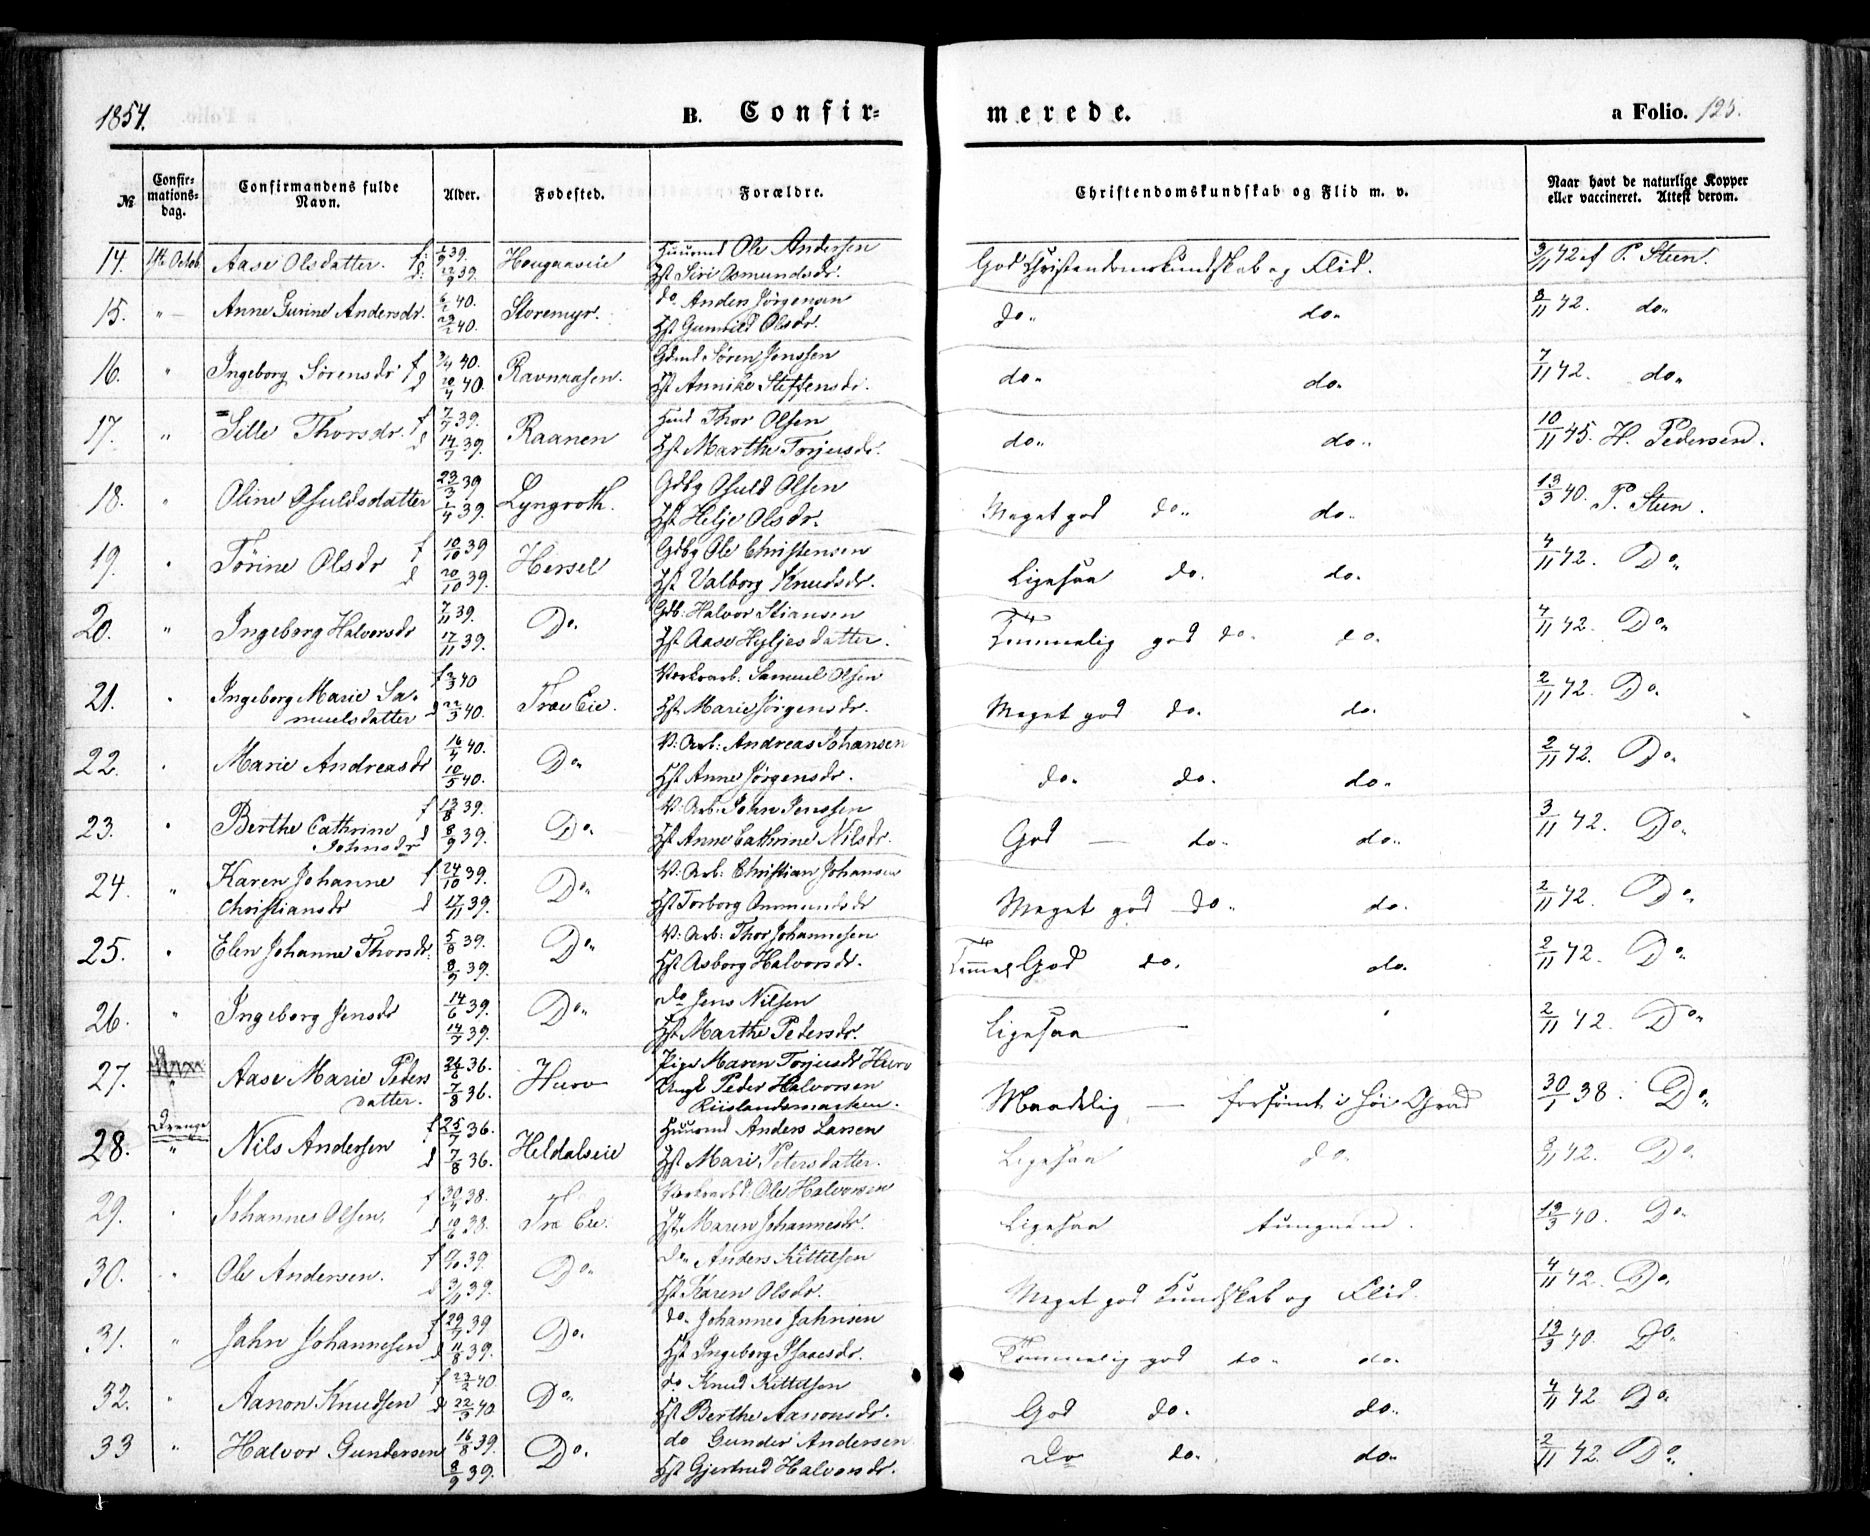 1854.
B. Confir-
merede.
a Folio. 125.
№
Confir-
mations-
dag.
Confirmandens fulde
Navn.
Alder.
Fødested.
Forældre.
Christendomskundskab og Flid m. v.
Naar havt de naturlige Kopper
eller vaccineret. Attest derom.
14. Octob Aase Olsdatter. Hougaaseie Huusmd Ole Andersen
Hst Siri Osmundsdr.
God Christendomskundskab og Flid. 3/11 42 af P. Steen.
15. " Anne Gurine Andersdr. 6/2 40. 23/2 40. Storemyr. do Anders Jørgensen
Hst Gunnild Olsdr.
do do 8/11 42. do
16. " Ingeborg Sørensdr f 3/4 40. d 20/4 40. Ravnaasen. Gdmd Søren Jenssen
Hst Annike Steffensdr.
do do 7/11 42. do
17. " Sille Thorsdr. f 7/7 39. d 14/7 39. Raanen Hmd Thor Olsen
Hst Marthe Torjusdr.
do do 10/11 45. H. Pedersen.
18. " Oline Osuldsdatter 23/3 39 1/4 39. Lyngroth. Gdbg Osuld Olsen
Hst Helje Olsdr.
Meget god do do 13/3 40. P. Steen.
19. " Tørine Olsdr f 10/10 39 d 20/10 39. Hersel Gdbg Ole Christensen
Hst Valborg Knudsdr.
Ligesaa do. do. 4/11 42. Do
20. " Ingeborg Halvorsdr 7/11 39. 17/11 39. Do Gdb: Halvor Stiansen
Hst Aase Hyljesdatter.
Temmelig god do do 4/11 42. Do
21. " Ingeborg Marie Sa-
muelsdatter f 3/3 40 d 22/3 40. Træe Eie. Værksarb. Samuel Olsen
Hst Marie Jørgensdr.
Meget god do. do. 2/11 42. Do
22. " Marie Andreasdr 16/4 40. 10/5 40. Do V: Arb: Andreas Johansen
Hst Anne Jørgensdr.
do do. do. 2/11 42. Do
23. " Berthe Cathrine
Johnsdr f 13/8 39. d 8/9 39. Do. V: Arb: John Jenssen
Hst Anne Cathrine Nilsdr.
God — do do 3/11 42. Do
24. " Karen Johanne
Christiansdr f 24/10 39. d 17/11 39. Do V: Arb: Christian Johansen
Hst Torborg Aanmundsdr
Meget god do do. 2/11 42. Do
25. " Elen Johanne Thorsdr. 5/8 39. 8/9 39. Do V: Arb: Thor Johannesen
Hst Asborg Halvorsdr.
Temmel God do. do. 2/11 42. Do
26. " Ingeborg Jensdr 14/6 39. 14/7 39. Do do Jens Nilsen
Hst Marthe Pedersdr.
Ligesaa " 2/11 42. Do
27. " Aase Marie Peders
datter. 26/6 36. 7/8 36. Huro Pige Maren Torjusdr Huro
Ungk Peder Halvorsen
Riislandsmarken.
Maadelig — forsømt i høi Grad 30/1 38. Do
Drenge
28. " Nils Andersen f 25/7 36. d 7/8 36. Heldalseie Huusmd Anders Larsen
Hst Mari Petersdatter.
Ligesaa do. 9/11 42. Do.
29. " Johannes Olsen. f 30/4 38. d 10/6 38. Træ Eie. Værksarbd. Ole Halvorsen
Hst Maren Johannesdr.
Ligesaa tungnem. 19/3 40. Do
30. " Ole Andersen. 39. 3/11 39. Do Do Anders Kittelsen
Hst Karen Olsdr.
Meget god Kundskab og Flid. 4/11 42. Do.
31. " Jahn Johannesen f 29/7 39 d 11/8 39. Do. do. Johannes Jahnsen
Hst Ingeborg Isaacsdr.
Temmelig god do do. 19/3 40. Do.
32. " Aanon Knudsen f 23/2 40 d 22/3 40 Do do Knud Kittelsen
Hst Berthe Aanonsdr.
God do. do. 4/11 42 Do
33 " Halvor Gundersen 16/8 39. 8/9 39. Do. do Gunder Andersen
Hst Gjertrud Halvorsdr.
Do do. do 2/11 42. Do